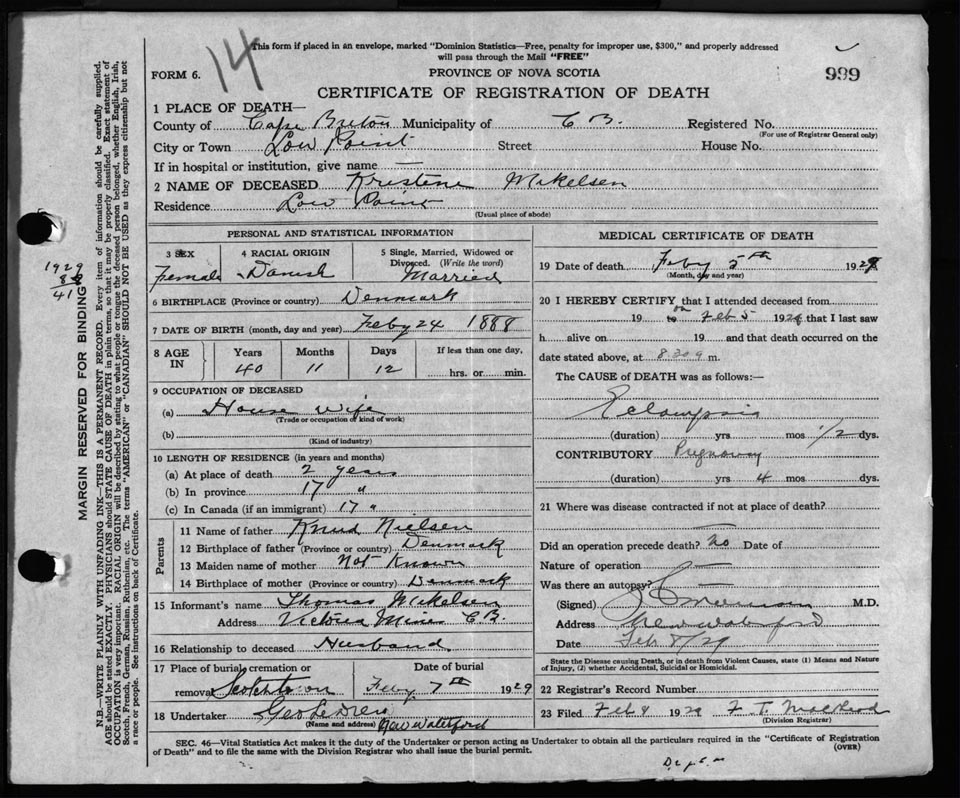 14
This form if placed in an envelope, marked "Dominion Statistics—Free, penalty for improper use, $300," and properly addressed
will pass through the Mail "FREE"
999
FORM 6.
PROVINCE OF NOVA SCOTIA
CERTIFICATE OF REGISTRATION OF DEATH
1 PLACE OF DEATH—
County of Cape Breton Municipality of C B. Registered No.
(For use of Registrar General only)
City or Town Low Point Street House No.
If in hospital or institution, give name —
2 NAME OF DECEASED Kristene Mikelsen
Residence Low Point
(Usual place of abode)
PERSONAL AND STATISTICAL INFORMATION
3 SEX 4 RACIAL ORIGIN 5 Single, Married, Widowed or
Divorced. (Write the word)
Female Danish Married
6 BIRTHPLACE (Province or country) Denmark
7 DATE OF BIRTH (month, day and year) Feby 24 1888
8 AGE IN Years Months Days If less than one day,
40 11 12 hrs. or min.
9 OCCUPATION OF DECEASED
(a) House wife
(Trade or occupation of kind of work)
(b)
(Kind of industry)
10 LENGTH OF RESIDENCE (in years and months)
(a) At place of death 2 years
(b) In province 17 "
(c) In Canada (if an immigrant) 17 "
Parents
11 Name of father Knud Nielsen
12 Birthplace of father (Province or country) Denmark
13 Maiden name of mother Not Known
14 Birthplace of mother (Province or country) Denmark
15 Informant's name Thomas Mikelsen
Address Victoria Mines C.B.
16 Relationship to deceased Husband
17 Place of burial, cremation or Date of burial
removal Scotchtown Feby 7th 1929
18 Undertaker Geo L Drew
(Name and address) New Waterford
MEDICAL CERTIFICATE OF DEATH
19 Date of death Feby 5th 1929
(Month, day and year)
20 I HEREBY CERTIFY that I attended deceased from
19 to on Feb 5 1929 that I last saw
h alive on 19 and that death occurred on the
date stated above, at m.
The CAUSE of DEATH was as follows:—
Eclampsia
(duration) yrs mos 1/2 dys.
CONTRIBUTORY Pregnancy
(duration) yrs 4 mos dys.
21 Where was disease contracted if not at place of death?
—
Did an operation precede death? No Date of
Nature of operation —
Was there an autopsy? —
(Signed) M.D.
Address New Waterford
Date Feb 8/29
State the Disease causing Death, or in death from Violent Causes, state (1) Means and Nature
of Injury, (2) whether Accidental, Suicidal or Homicidal.
22 Registrar's Record Number
23 Filed Feb 9 1929 F. T. MacLeod
(Division Registrar)
SEC. 46—Vital Statistics Act makes it the duty of the Undertaker or person acting as Undertaker to obtain all the particulars required in the "Certificate of Registration
of Death" and to file the same with the Division Registrar who shall issue the burial permit.
(OVER)
MARGIN RESERVED FOR BINDING
1929
88
41
N.B—WRITE PLAINLY WITH UNFADING INK—THIS IS A PERMANENT RECORD. Every item of information should be carefully supplied.
AGE should be stated EXACTLY. PHYSICIANS should STATE CAUSE OF DEATH in plain terms, so that it may be properly classified. Exact statement of
OCCUPATION is very important. RACIAL ORIGIN will be described by stating to what people or tongue the deceased person belonged, whether English, Irish,
Scotch, French, German, Russian, Ruthenian, etc. The terms "AMERICAN" or "CANADIAN" SHOULD NOT BE USED as they express citizenship but not
a race or people. See instructions on back of Certificate.